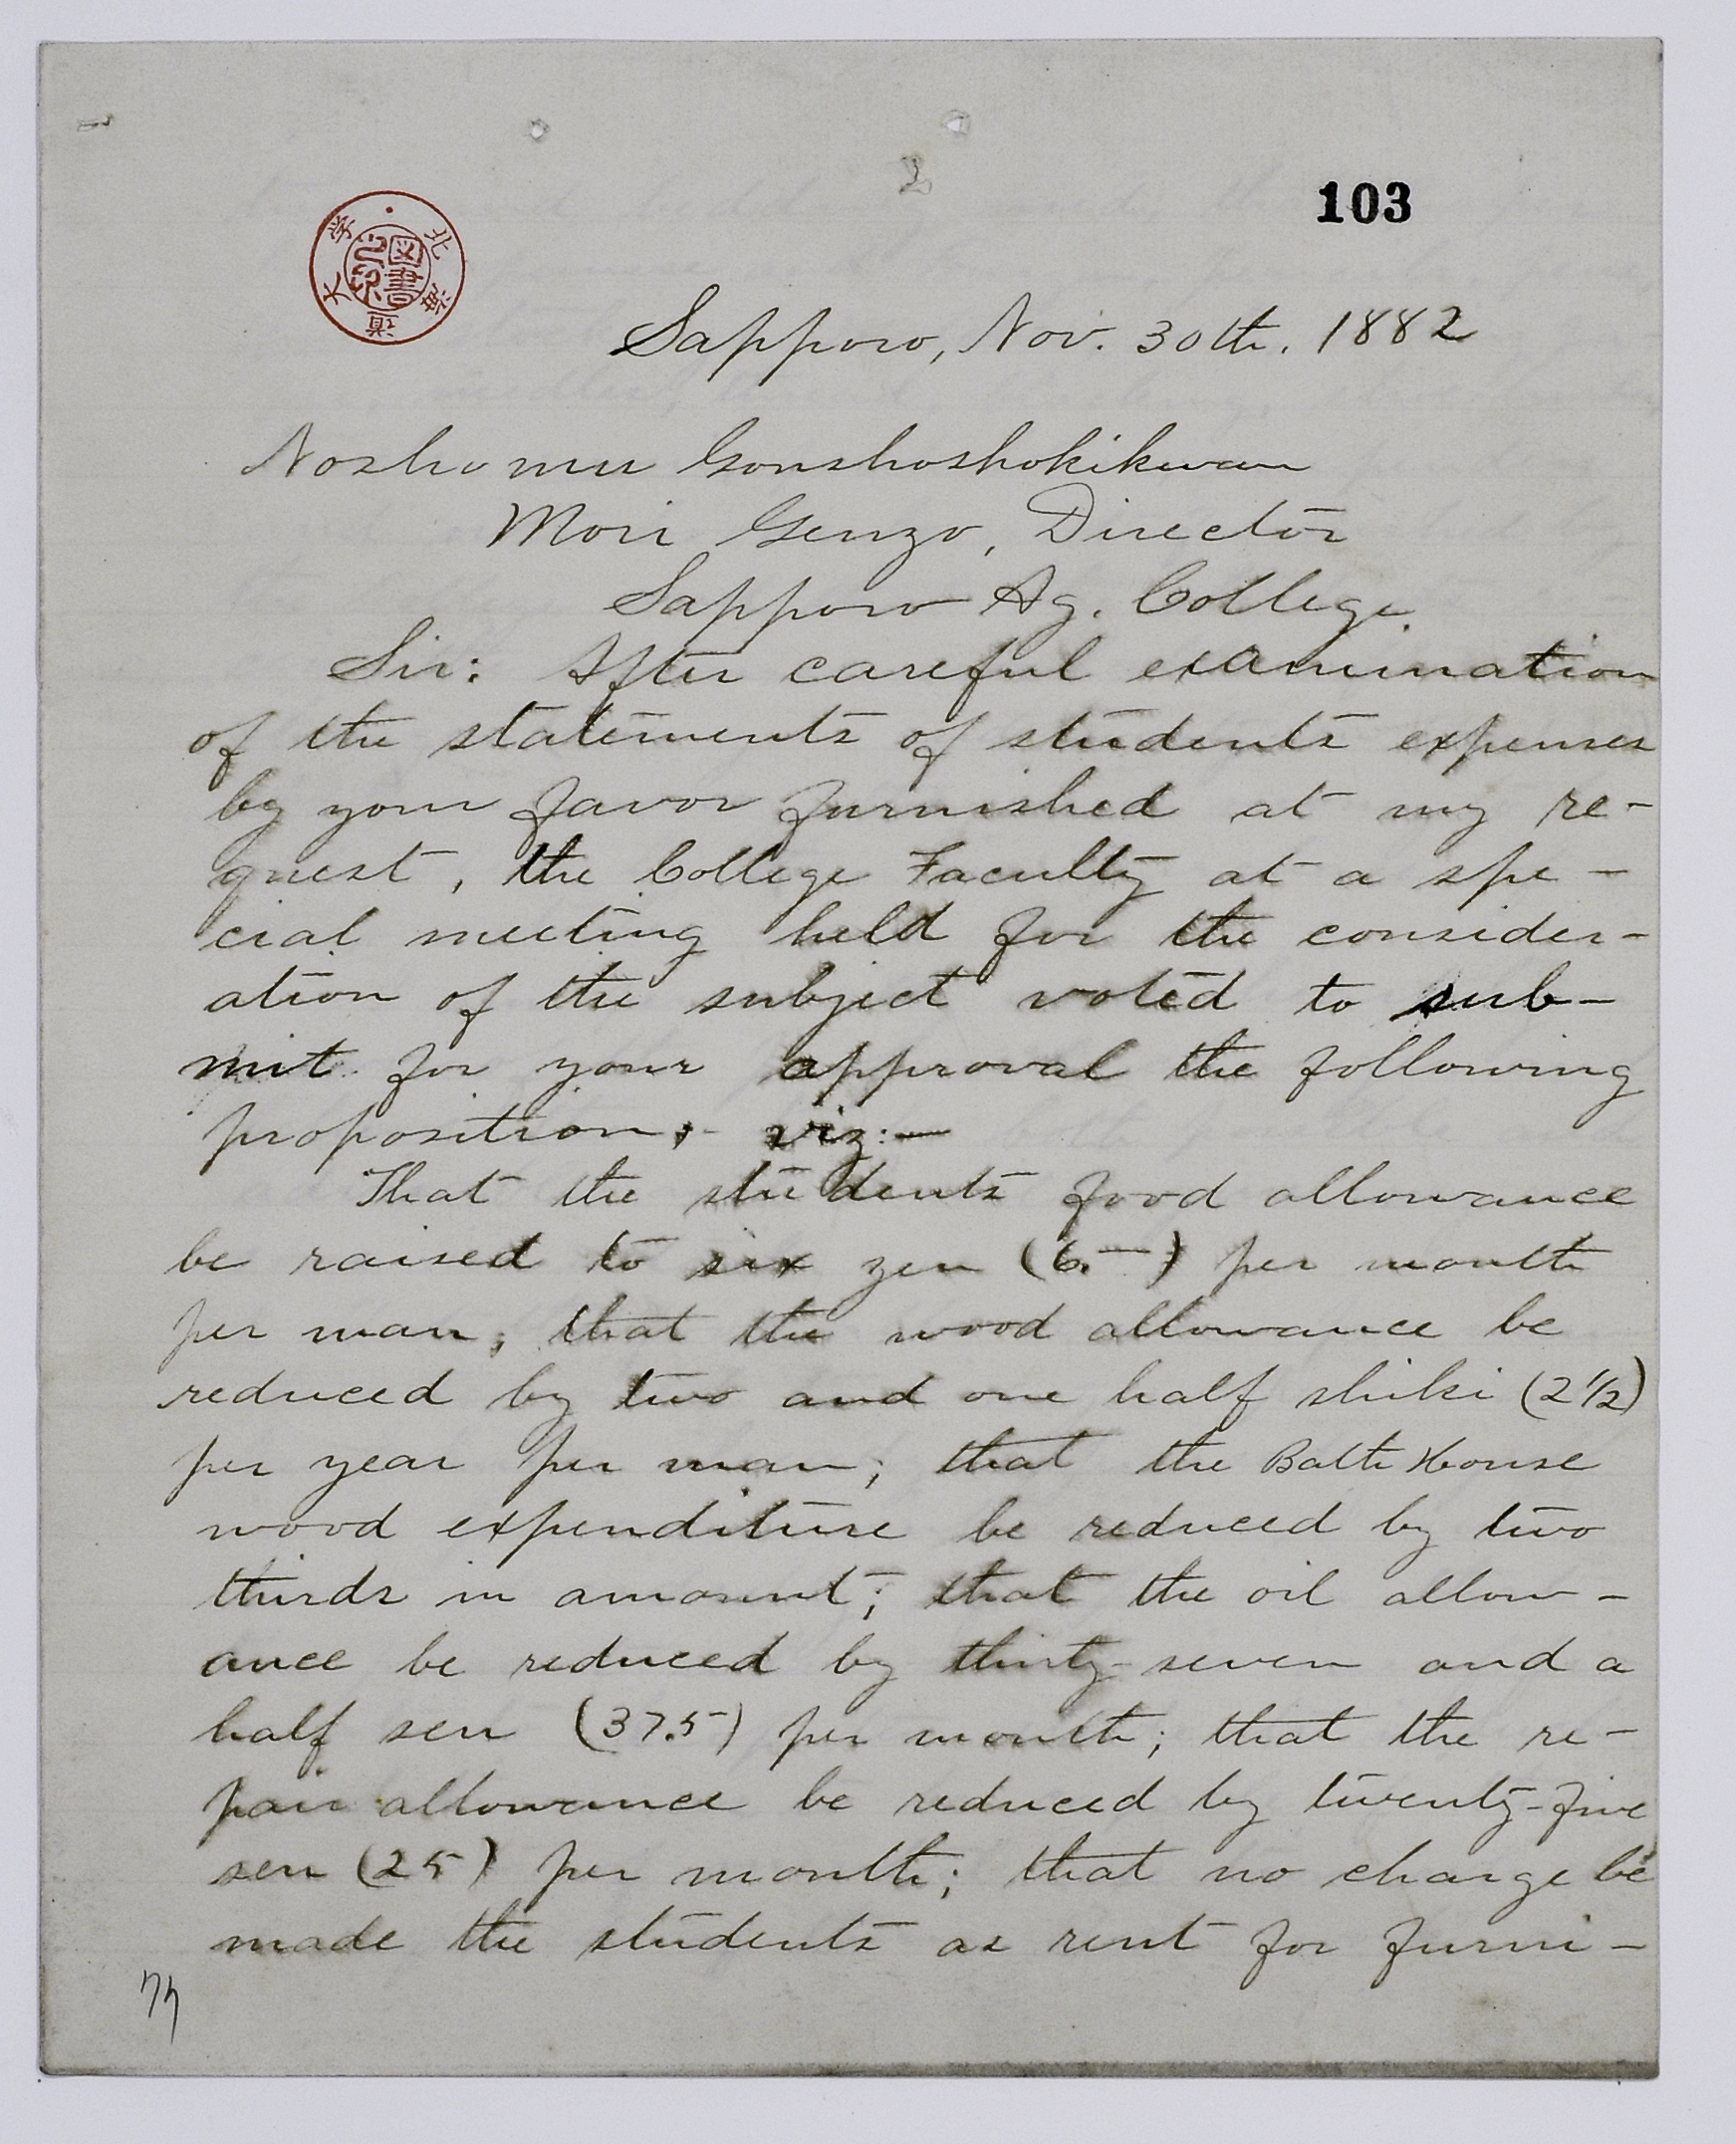 103
北海道大学
図書之印
Sapporo, Nov. 30th. 1882
Noshomu Gonshoshokikwan
Mori Genzo, Director
Sapporo Ag. College.
Sir: After careful examination
of the statements of students expenses
by your favor furnished at my re-
quest, the College Faculty at a spe-
cial meeting held for the consider-
ation of the subject voted to sub-
mit for your approval the following
proposition, - viz:—
That the students food allowance
be raised to six yen (6.—) per month
per man; that the wood allowance be
reduced by two and one half shiki (2 1/2)
per year per man; that the Bath House
wood expenditure be reduced by two
thirds in amount; that the oil allow-
ance be reduced by thirty-seven and a
half sen (37.5) per month; that the re-
pair allowance be reduced by twenty-five
sen (25) per month; that no charge be
made the students as rent for furni-